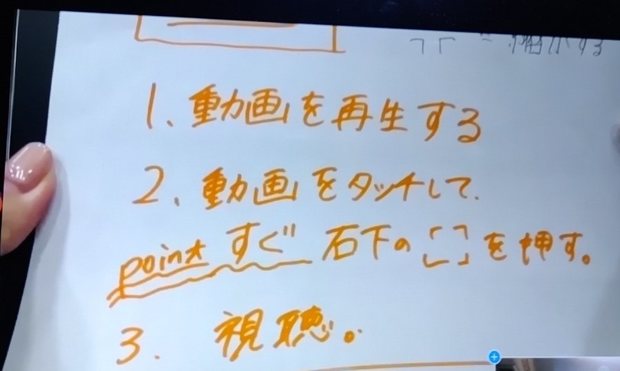 1、動画を再生する
2、動画をタッチして
point すぐ 石下の[ ]を押す。
3. 視聴。